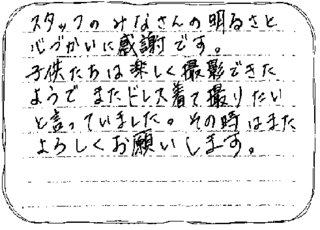 スタッフのみなさんの明るさと
心づかいに感謝です。
子供たちは楽しく撮影できた
ようで またドレス着て撮りたい
と言っていました。その時はまた
よろしくお願いします。